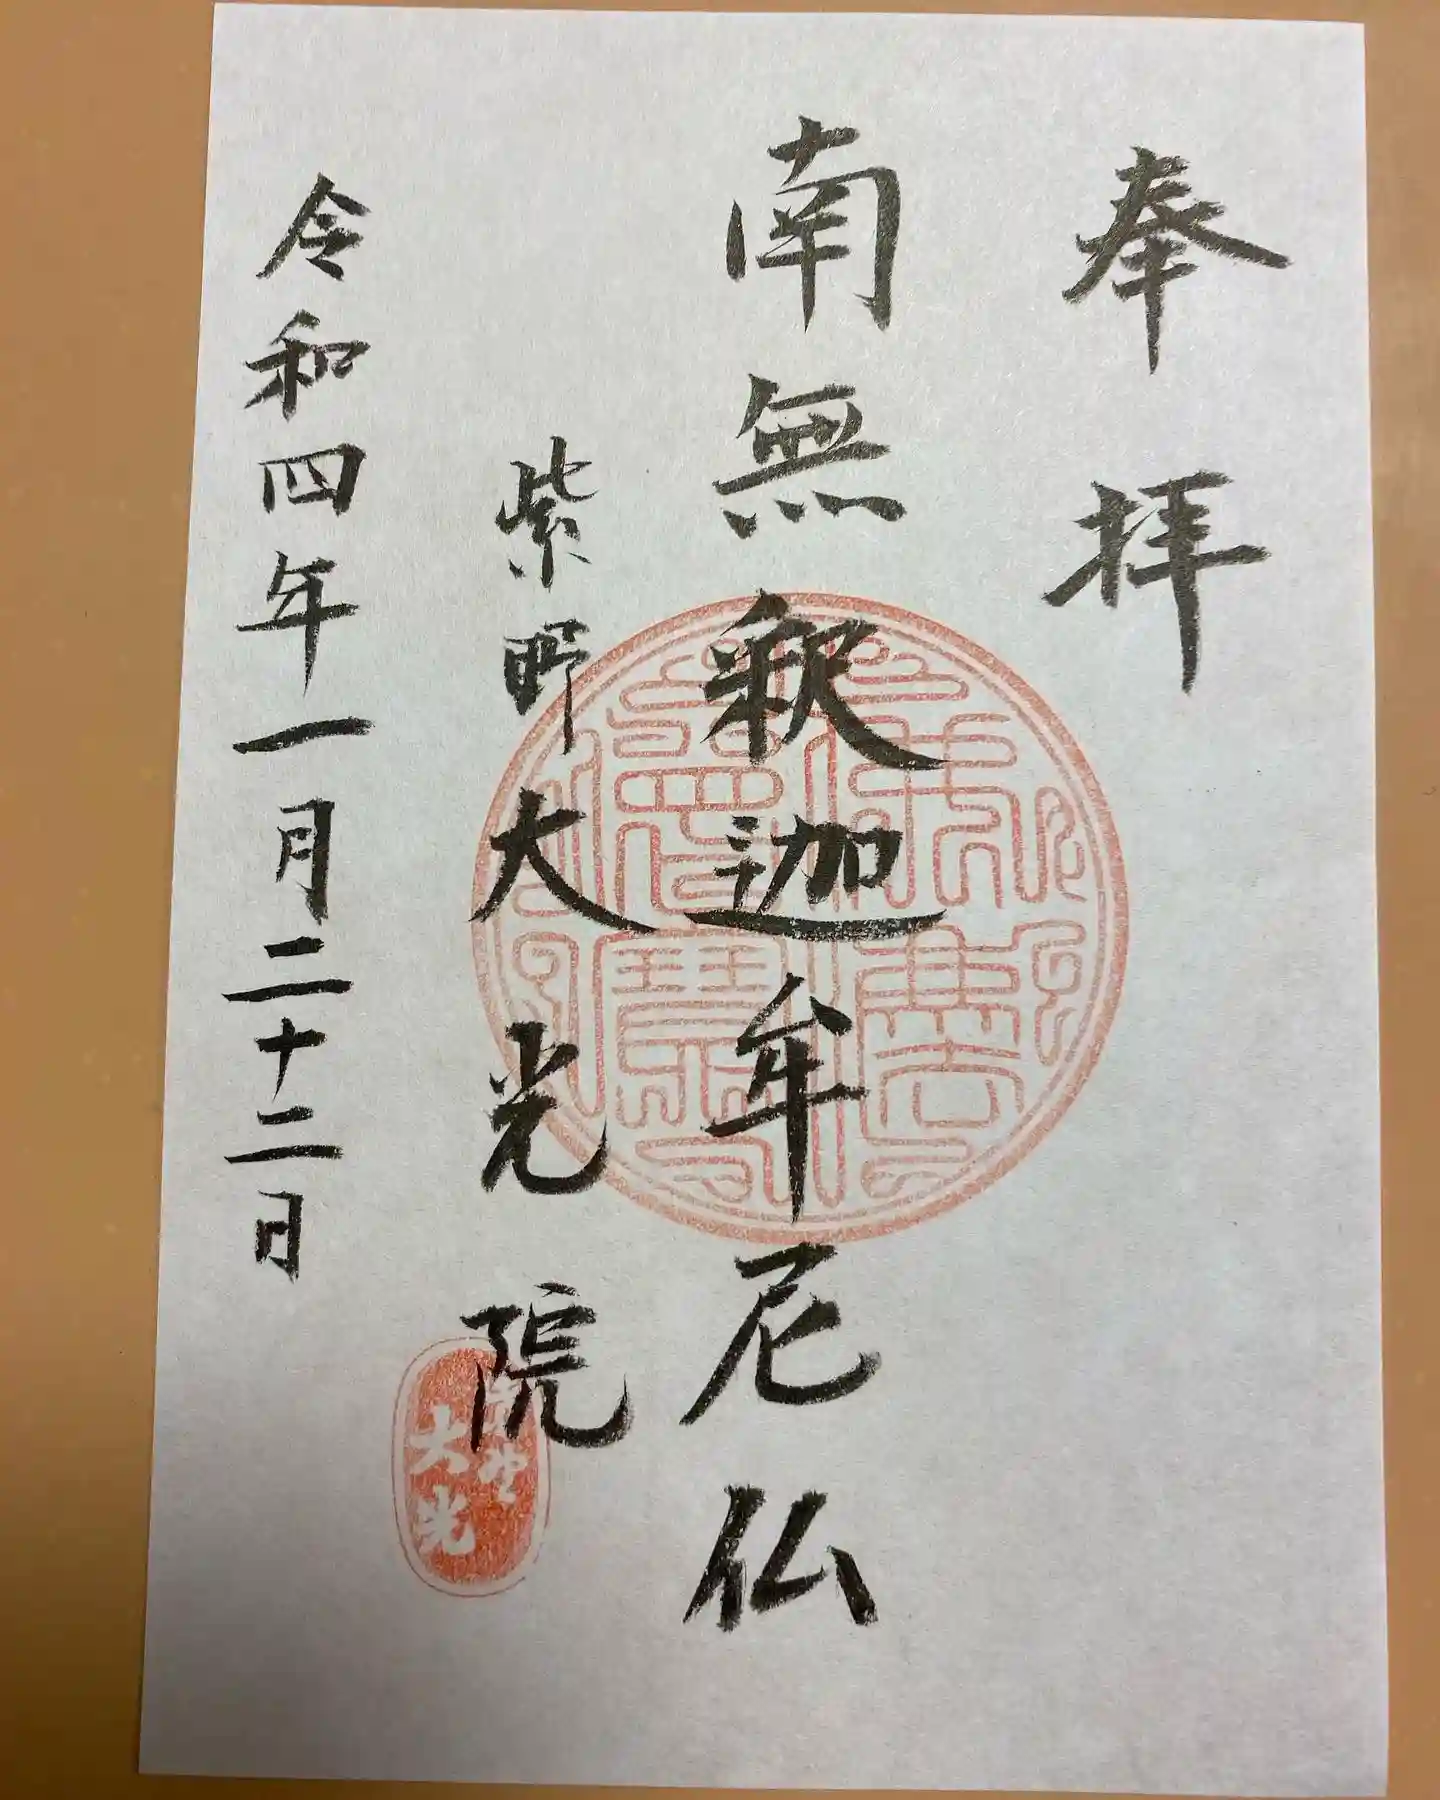 奉拝
南無釈迦牟尼仏
紫野大光院
令和四年一月二十二日
大光